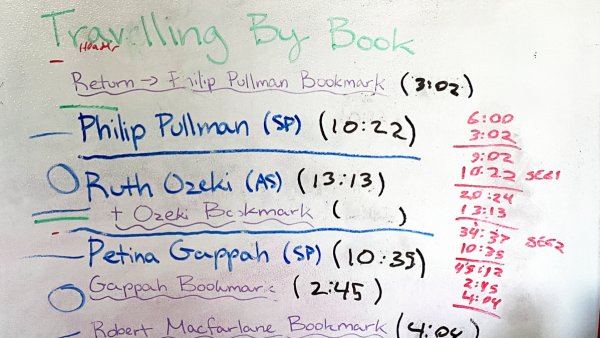 Travelling By Book
Header
Return → Philip Pullman Bookmark (3:02)
Philip Pullman (SP) (10:22)
Ruth Ozeki (AS) (13:13)
+ Ozeki Bookmark ( )
Petina Gappah (SP) (10:35)
Gappah Bookmark (2:45)
Robert Macfarlane Bookmark (4:04)
6:00
3:02
9:02
10:22 SEG1
20:24
13:13
34:37 SEG2
10:35
45:12
2:45
4:04